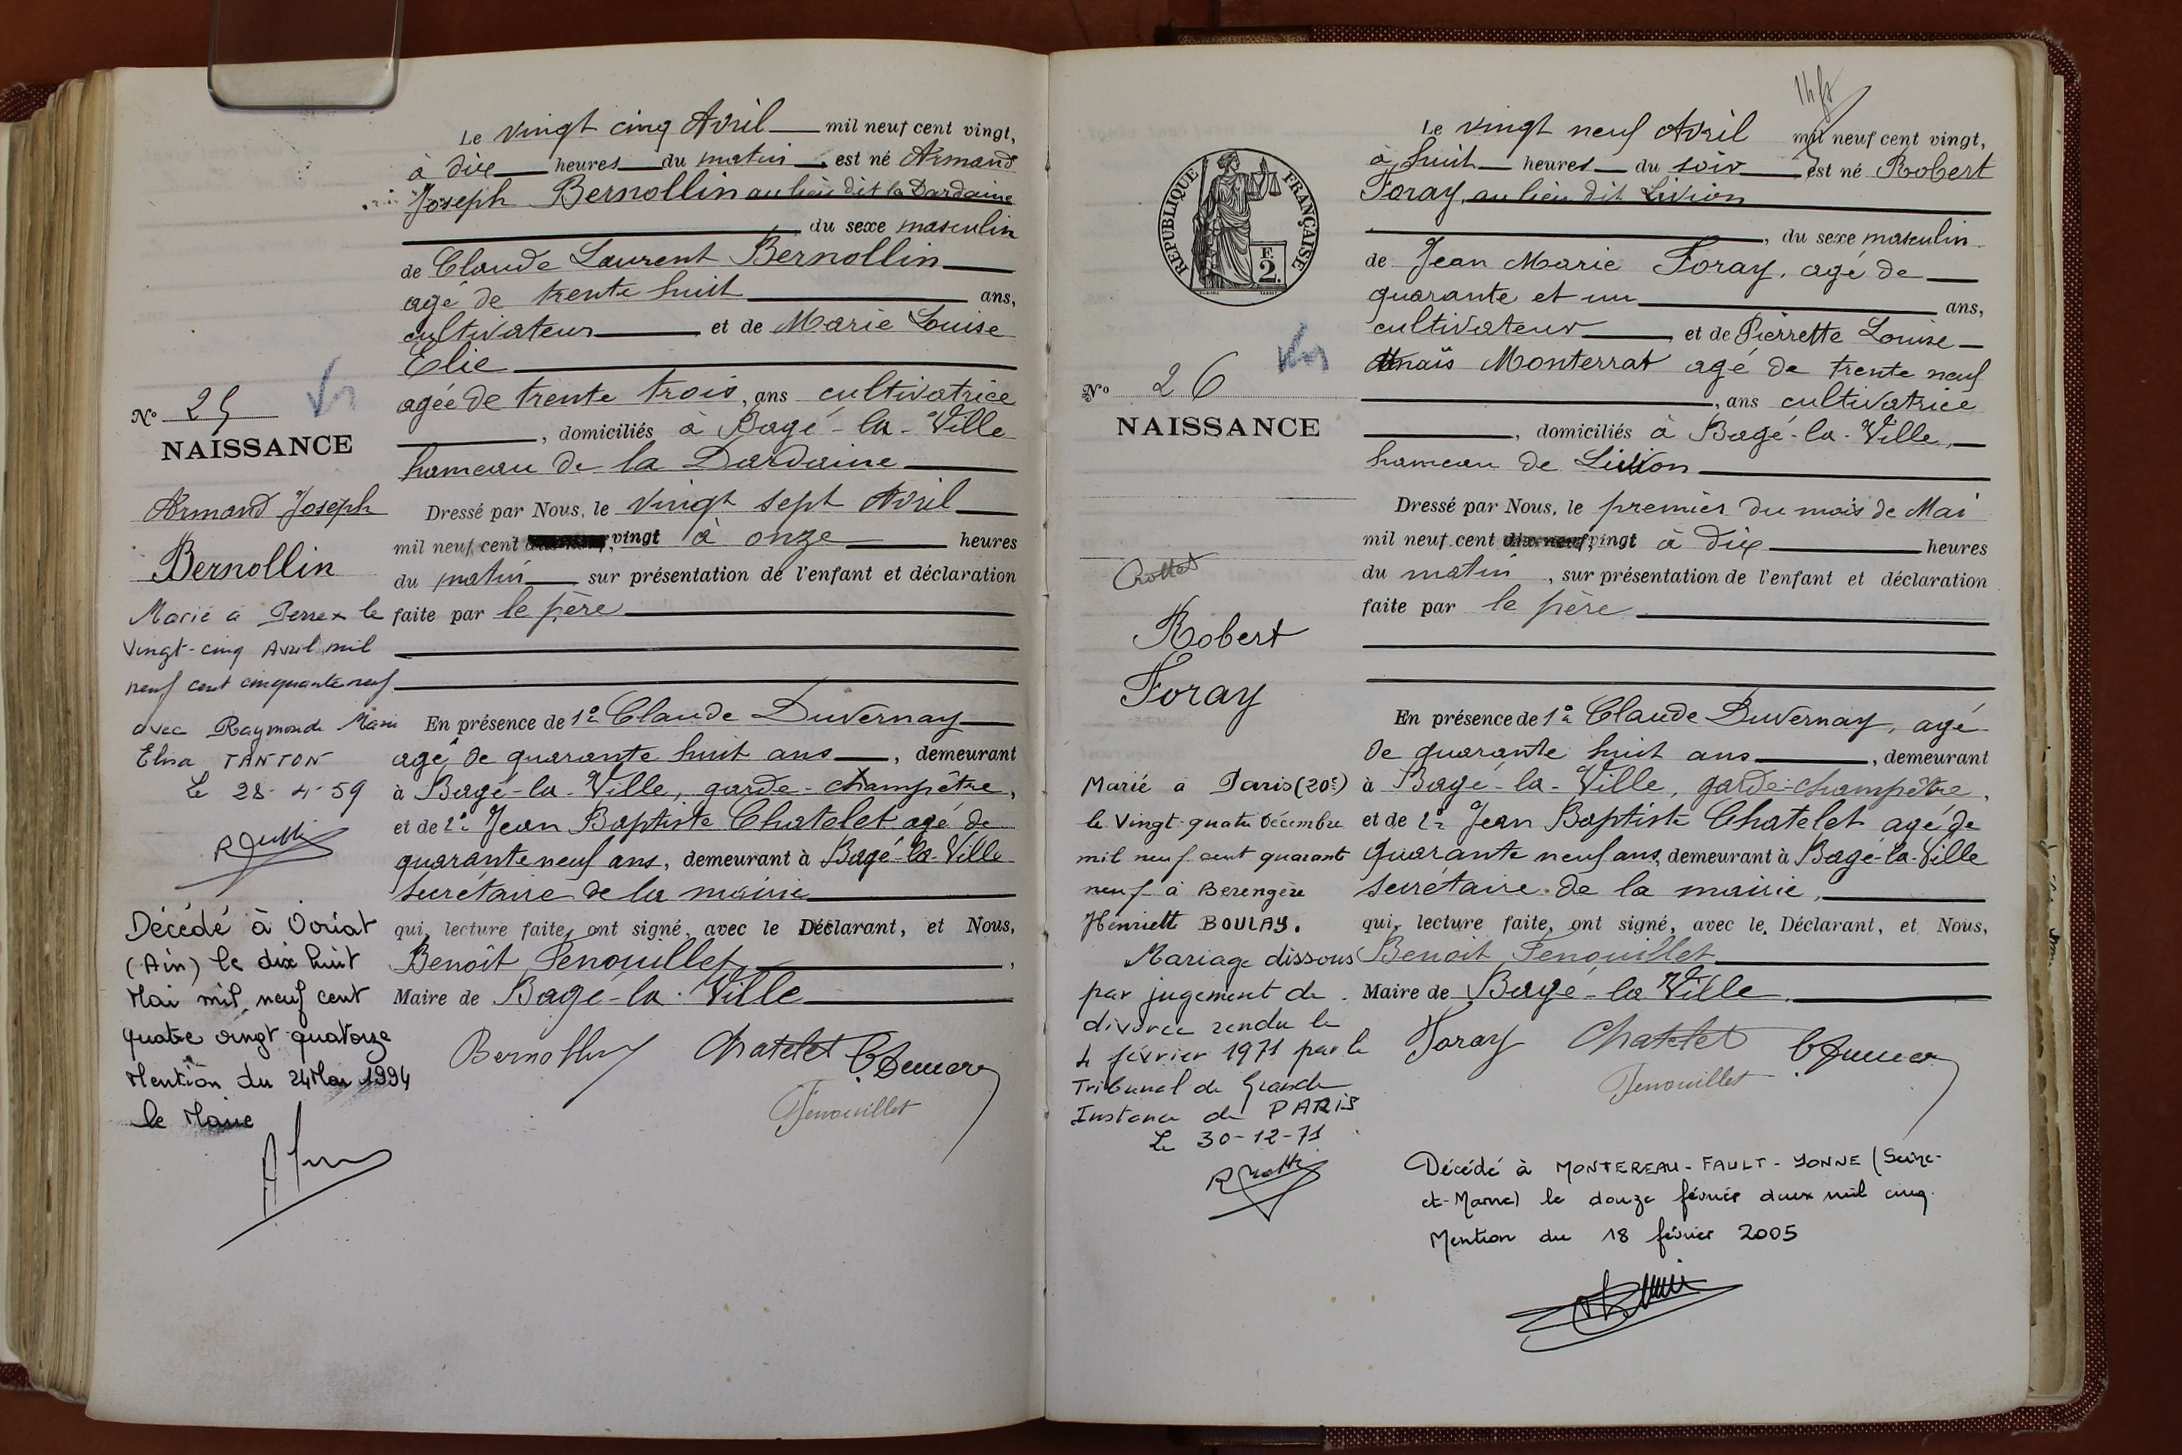 Le vingt cinq Avril mil neuf cent vingt,
à dix heures du matin est né Armand
Joseph Bernollin au lieu dit la Dardaine
du sexe masculin
de Claude Laurent Bernollin
agé de trente huit ans,
cultivateur et de Marie Louise
Elie
agée de trente trois, ans cultivatrice
, domiciliés à Bagé-la-Ville
hameau de la Dardaine
Dressé par Nous, le vingt sept Avril
mil neuf cent vingt à onze heures
du matin sur présentation de l'enfant et déclaration
faite par le père
En présence de 1º Claude Duvernay
agé de quarante huit ans, demeurant
à Bagé-la-Ville, garde-champêtre,
et de 2º Jean Baptiste Chatelet agé de
quarante neuf ans, demeurant à Bagé-la-Ville
secrétaire de la mairie
qui, lecture faite, ont signé, avec le Déclarant, et Nous,
Benoît Fenouillet,
Maire de Bagé-la-Ville
Bernollin Chatelet CDuverny
Fenouillet
Nº 25
NAISSANCE
Armand Joseph
Bernollin
Marié à Perrex le
Vingt-cinq Avril mil
neuf cent cinquante neuf
avec Raymonde Marie
Elisa TANTON
Le 28-4-59
Décédé à Viriat
(Ain) le dix huit
Mai mil neuf cent
quatre vingt quatorze
Mention du 24 Mai 1994
le Maire
REPUBLIQUE FRANÇAISE
E
2.
Nº 26
NAISSANCE
Crottet
Robert
Foray
Marié à Paris (20e)
le Vingt-quatre Décembre
mil neuf cent quarante
neuf à Berengère
Henriette BOULAY.
Mariage dissous
par jugement de
divorce rendu le
4 février 1971 par le
Tribunal de Grande
Instance de PARIS
Le 30-12-71
Le vingt neuf Avril mil neuf cent vingt,
à huit heures du soir est né Robert
Foray, au lieu dit Livion
, du sexe masculin
de Jean Marie Foray, agé de
quarante et un ans,
cultivateur et de Pierrette Louise
Anaïs Monterrat agé de trente neuf
, ans cultivatrice
, domiciliés à Bagé-la-Ville,
hameau de Livion
Dressé par Nous, le premier du mois de Mai
mil neuf cent dix-neuf, vingt à dix heures
du matin, sur présentation de l'enfant et déclaration
faite par le père
En présence de 1º Claude Duvernay, agé
de quarante huit ans, demeurant
à Bagé-la-Ville, garde-champêtre,
et de 2º Jean Baptiste Chatelet agé de
quarante neuf ans, demeurant à Bagé-la-Ville
secrétaire de la mairie,
qui, lecture faite, ont signé, avec le Déclarant, et Nous,
Benoît Fenouillet
Maire de Bagé-la-Ville.
Foray Chatelet
Fenouillet
Décédé à MONTEREAU-FAULT-YONNE (Seine-
et-Marne) le douze février deux mil cinq.
Mention du 18 février 2005